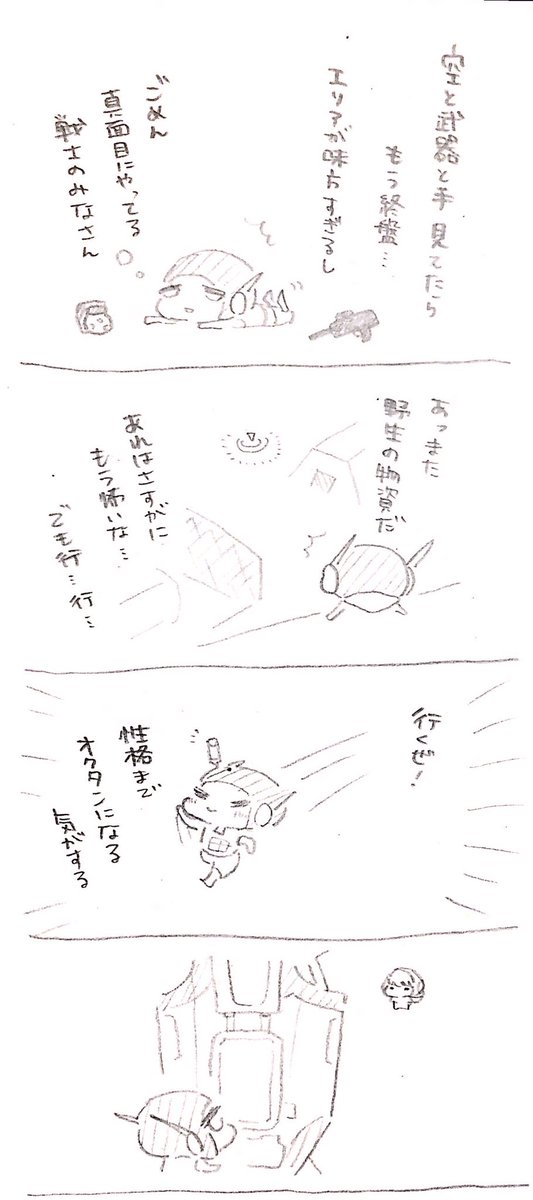 空と武器と手見てたら
もう終盤…
エリアが味方すぎるし
ごめん
真面目にやってる
戦士のみなさん
あっまた
野生の物資だ
あれはさすがに
もう怖いな…
でも行…行…
行くぜ！
性格まで
オクタンになる
気がする